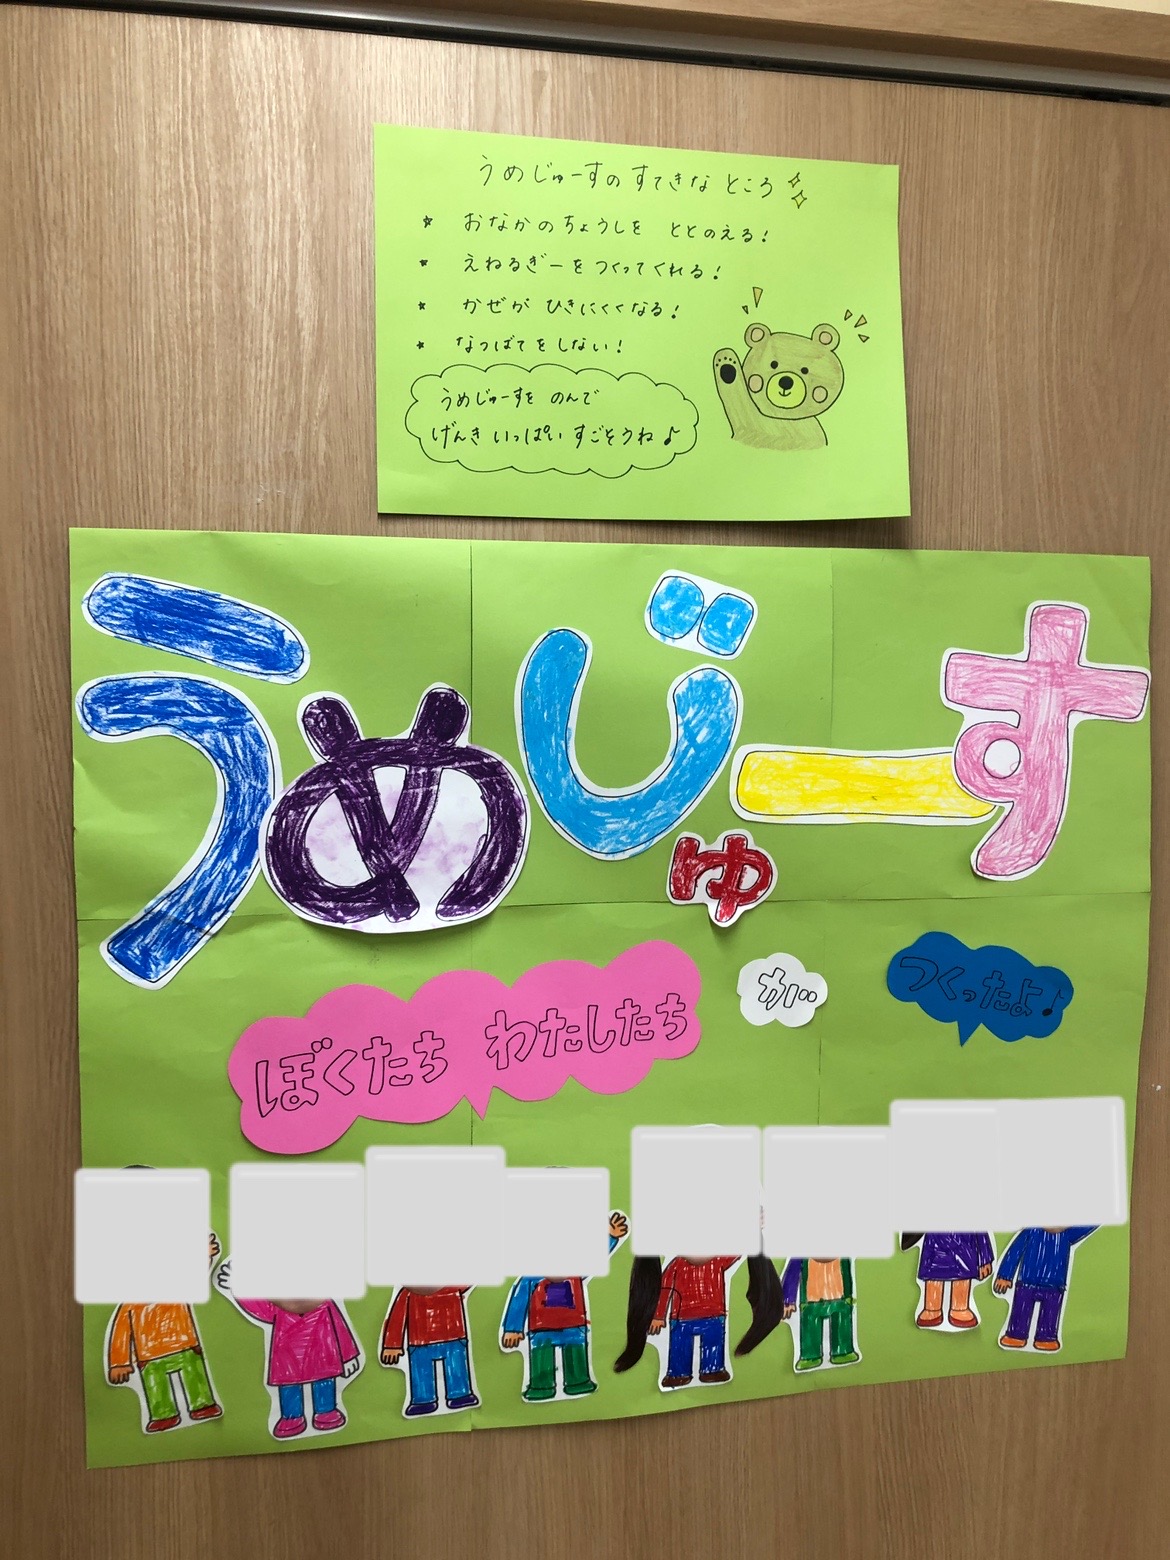 うめじゅーすのすてきなところ
★ おなかのちょうしを ととのえる!
★ えねるぎーをつくってくれる!
★ かぜが ひきにくくなる!
★ なつばてをしない!
うめじゅーすを のんで
げんき いっぱい すごそうね♪
うめじゅーす
ぼくたち わたしたち
が
つくったよ♪